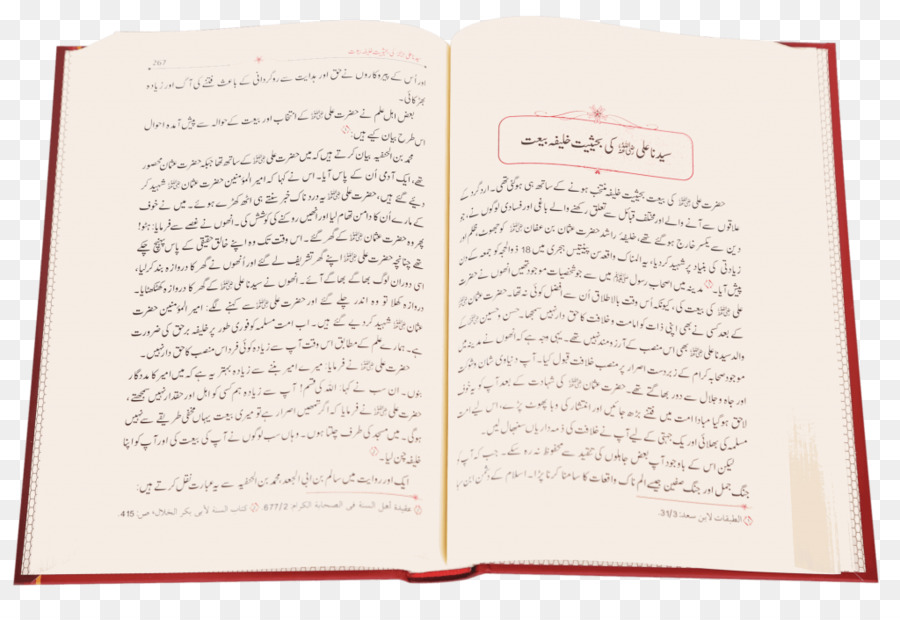 سیدنا علی ؓ کی بحیثیت خلیفہ بیعت
حضرت علی ؓ کی بیعت بحیثیت خلیفہ منتخب ہونے کے ساتھ ہی ہوگئی تھی۔ اردگرد کے
علاقوں سے آنے والے اور مختلف قبائل سے تعلق رکھنے والے باغی اور فسادی لوگوں نے، جو
دین سے یکسر خارج ہوگئے تھے، خلیفۂ راشد حضرت عثمان بن عفان ؓ کو جھوٹ، ظلم اور
زیادتی کی بنیاد پر شہید کر دیا، یہ المناک واقعہ سن پینتیس ہجری میں 18 ذوالحجہ کو جمعہ کے دن
پیش آیا۔ مدینہ میں اصحاب رسول ﷺ میں سے جو شخصیات موجود تھیں انھوں نے حضرت
علی ؓ کی بیعت کی، کیونکہ اُس وقت بالاطلاق اُن سے افضل کوئی نہ تھا۔ حضرت عثمان ؓ
کے بعد کسی نے بھی اپنی ذات کو امامت و خلافت کا حق دار نہیں سمجھا۔ حسن و حسین ؓ کے
والد سیدنا علی ؓ بھی اس منصب کے آرزو مند نہیں تھے۔ یہی وجہ ہے کہ انھوں نے مدینہ میں
موجود صحابہ کرام کے زبردست اصرار پر منصب خلافت قبول کیا۔ آپ دنیاوی شان و شوکت
اور جاہ و جلال سے دور بھاگتے تھے۔ حضرت عثمان ؓ کی شہادت کے بعد آپ کو یہ خوف
لاحق ہوگیا مبادا امت میں فتنے بڑھ جائیں اور انتشار کی وبا پھوٹ پڑے، اس لیے امت
مسلمہ کی بھلائی اور یک جہتی کے لیے آپ نے خلافت کی ذمہ داریاں سنبھال لیں۔
لیکن اس کے باوجود آپ بعض جاہلوں کی تنقید سے محفوظ نہ رہ سکے۔ جب کہ آپ کو
جنگ جمل اور جنگ صفین جیسے الم ناک واقعات کا سامنا کرنا پڑا۔ اسلام کے دشمن ابن سبا
الطبقات لابن سعد: 31/3.
267
اور اُس کے پیروکاروں نے حق اور ہدایت سے روگردانی کے باعث فتنے کی آگ اور زیادہ
بھڑکائی۔
بعض اہل علم نے حضرت علی ؓ کے انتخاب اور بیعت کے حوالہ سے پیش آمدہ احوال
اس طرح بیان کیے ہیں:
محمد بن الحنفیہ بیان کرتے ہیں کہ میں حضرت علی ؓ کے ساتھ تھا جبکہ حضرت عثمان محصور
تھے، ایک آدمی اُن کے پاس آیا۔ اس نے کہا کہ امیر المؤمنین حضرت عثمان ؓ شہید کر
دیے گئے ہیں، حضرت علی ؓ یہ دردناک خبر سنتے ہی اٹھ کھڑے ہوئے۔ میں نے خوف
کے مارے اُن کا دامن تھام لیا اور انھیں روکنے کی کوشش کی۔ انھوں نے غصے سے فرمایا: ہٹو!
پھر وہ حضرت عثمان ؓ کے گھر گئے۔ اس وقت تک وہ اپنے خالق حقیقی کے پاس پہنچ چکے
تھے چنانچہ حضرت علی ؓ اپنے گھر تشریف لے گئے اور اُنھوں نے گھر کا دروازہ بند کر لیا،
اسی دوران لوگ بھاگے بھاگے آئے۔ انھوں نے سیدنا علی ؓ کے گھر کا دروازہ کھٹکھٹایا۔
دروازہ کھلا تو وہ اندر چلے گئے اور حضرت علی ؓ سے کہنے لگے: امیر المؤمنین حضرت
عثمان ؓ شہید کر دیے گئے ہیں۔ اب امت مسلمہ کو فوری طور پر خلیفہ برحق کی ضرورت
ہے۔ ہمارے علم کے مطابق اس وقت آپ سے زیادہ کوئی فرد اس منصب کا حق دار نہیں۔
حضرت علی ؓ نے فرمایا: میرے امیر بننے سے زیادہ بہتر یہ ہے کہ میں امیر کا مددگار
بنوں۔ ان سب نے کہا: اللہ کی قسم! آپ سے زیادہ ہم کسی کو اہل اور حقدار نہیں سمجھتے،
حضرت علی ؓ نے فرمایا کہ اگر تمھیں اصرار ہے تو میری بیعت یہاں مخفی طریقے سے نہیں
ہوگی۔ میں مسجد کی طرف چلتا ہوں۔ وہاں سب لوگوں نے آپ کی بیعت کی اور آپ کو اپنا
خلیفہ چن لیا۔
ایک اور روایت میں سالم بن ابی الجعد، محمد بن الحنفیہ سے یہ عبارت نقل کرتے ہیں:
عقیدة أهل السنة في الصحابة الكرام: 677/2. كتاب السنة لأبي بكر الخلال، ص: 415.